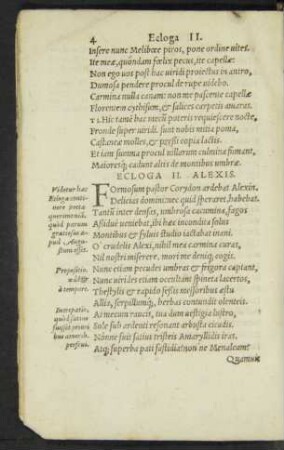 4 Ecloga II.
Insere nunc Melibœe piros, pone ordine uites.
Ite meæ, quondam fœlix pecus, ite capellæ:
Non ego uos post hac uiridi proiectus in antro,
Dumosa pendere procul de rupe uidebo.
Carmina nulla canam: non me pascente capellæ
Florentem cythisum, & salices carpetis amaras.
TI. Hic tamē hac mecū poteris requiescere nocte,
Fronde super uiridi. sunt nobis mitia poma,
Castaneæ molles, & pressi copia lactis.
Et iam summa procul uillarum culmina fumant,
Maioresq́; cadunt altis de montibus umbræ.
ECLOGA II. ALEXIS.
FOrmosum pastor Corydon ardebat Alexin,
Delicias domini: nec quid speraret, habebat.
Tantū inter densas, umbrosa cacumina, fagos
Assiduè ueniebat, ibi hæc incondita solus
Montibus & syluis studio iactabat inani.
O' crudelis Alexi, nihil mea carmina curas,
Nil nostri miserere. mori me deniq; cogis.
Nunc etiam pecudes umbras & frigora captant,
Nunc uirides etiam occultant spineta lacertos,
Thestylis & rapido fessis messoribus æstu
Allia, serpyllumq́; herbas contundit olenteis.
At mecum raucis, tua dum uestigia lustro,
Sole sub ardenti resonant arbusta cicadis.
Nónne fuit satius tristeis Amaryllidis iras,
Atq; superba pati fastidia? non ne Menalcam?
Quamuis
Videtur hæc
Ecloga conti-
nere poetæ
querimoniā,
quòd parum
gratiosus sit a-
pud Augu-
stum